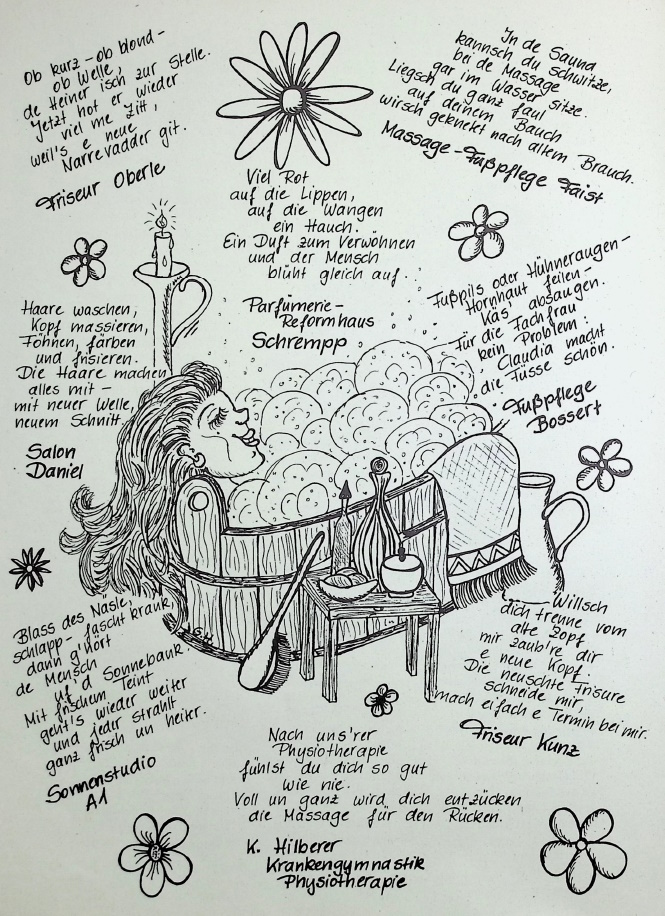 Ob kurz - ob blond -
ob Welle,
de Heiner isch zur Stelle.
Jetzt hot er wieder
viel me Zitt,
weil's e neue
Narrevadder git.
Friseur Oberle
In de Sauna
kannsch du schwitze,
bei de Massage
gar im Wasser sitze.
Liegsch du ganz faul
auf deinem Bauch
wirsch geknetet nach altem Brauch.
Massage-Fußpflege Faist
Viel Rot
auf die Lippen,
auf die Wangen
ein Hauch.
Ein Duft zum Verwöhnen
und der Mensch
blüht gleich auf.
Parfümerie-
Reformhaus
Schrempp
Fußpils oder Hühneraugen-
Hornhaut feilen-
Käs' absaugen.
Für die Fachfrau
kein Problem:
Claudia macht
die Füsse schön.
Fußpflege
Bossert
Haare waschen,
Kopf massieren,
Föhnen, färben
und frisieren.
Die Haare machen
alles mit -
mit neuer Welle,
neuem Schnitt.
Salon
Daniel
Blass des Näsle,
schlapp - fascht krank,
dann g'hört
de Mensch
uf'd Sonnebank
Mit frischem Teint
geht's wieder weiter
und jeder strahlt
ganz frisch un heiter.
Sonnenstudio
A1
S.H.
Willsch
dich trenne vom
alte Zopf
mir zaub're dir
e neue Kopf.
Die neuschte Frisure
schneide mir,
mach eifach e Termin bei mir.
Friseur Kunz
Nach uns'rer
Physiotherapie
fühlst du dich so gut
wie nie.
Voll un ganz wird dich entzücken
die Massage für den Rücken.
K. Hilberer
Krankengymnastik
Physiotherapie